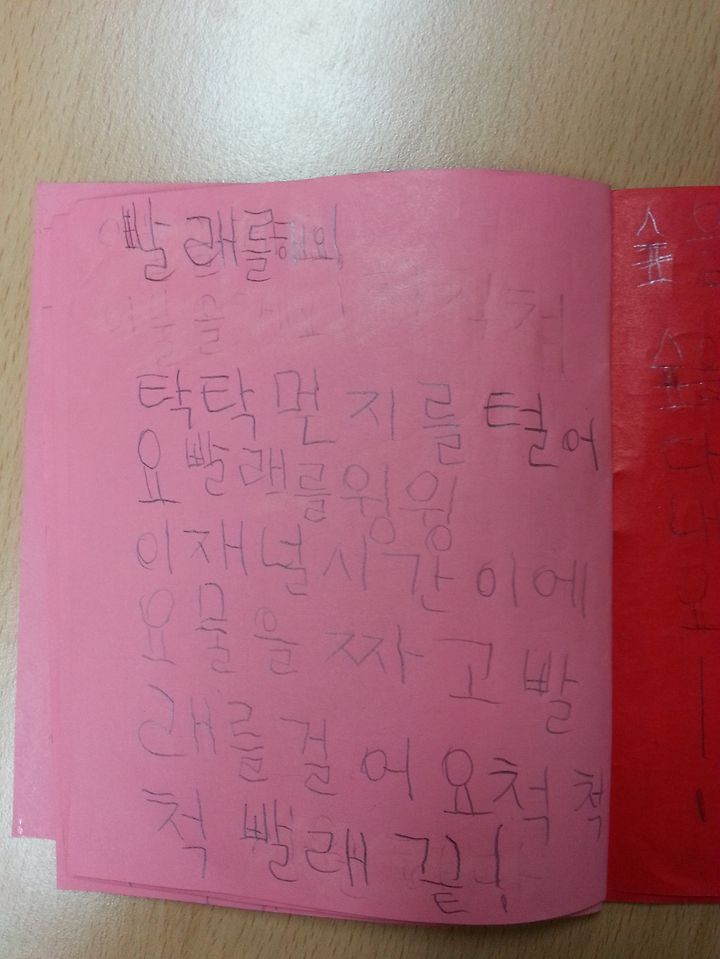 빨래를해요
탁탁 먼지를 털어
요 빨래를윙윙
이재 널시간이에
요물을 짜고 빨
래를 걸어요척척
척 빨래 끝!